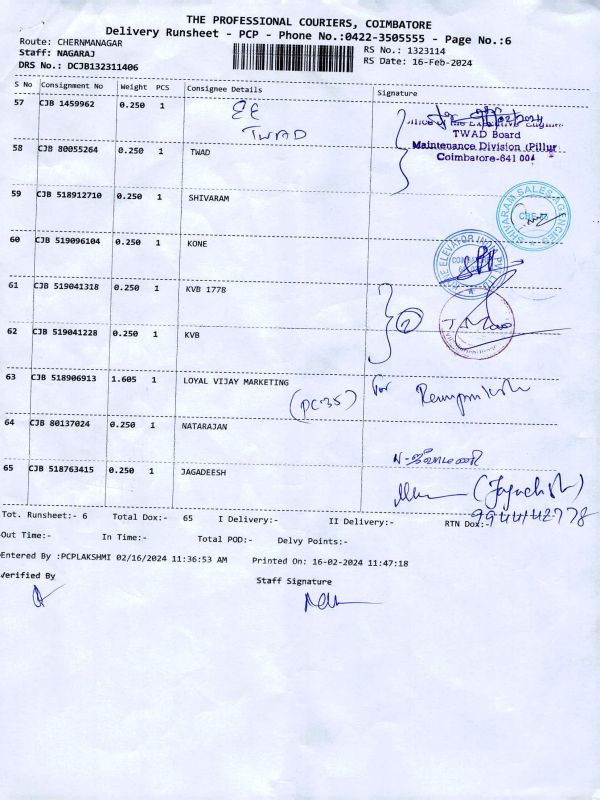 THE PROFESSIONAL COURIERS, COIMBATORE
Delivery Runsheet - PCP - Phone No.:0422-3505555 - Page No.:6
Route: CHERNMANAGAR
RS No.: 1323114
Staff: NAGARAJ
RS Date: 16-Feb-2024
DRS No.: DCJB132311406
S No Consignment No Weight PCS Consignee Details Signature
57 CJB 1459962 0.250 1 EE
TWAD
Office of the Executive Engineer
TWAD Board
Maintenance Division (Pillur
Coimbatore-641 004
58 CJB 80055264 0.250 1 TWAD
59 CJB 518912710 0.250 1 SHIVARAM
SHIVARAM SALES AGENCIES
60 CJB 519096104 0.250 1 KONE
KONE ELEVATOR INDIA PVT. LTD.
61 CJB 519041318 0.250 1 KVB 1778
2
62 CJB 519041228 0.250 1 KVB
63 CJB 518906913 1.605 1 LOYAL VIJAY MARKETING
(DC-35) For
64 CJB 80137024 0.250 1 NATARAJAN
65 CJB 518763415 0.250 1 JAGADEESH
(Jagadish)
9944142778
Tot. Runsheet:- 6 Total Dox:- 65 I Delivery:- II Delivery:- RTN Dox:-
Out Time:- In Time:- Total POD:- Delvy Points:-
Entered By :PCPLAKSHMI 02/16/2024 11:36:53 AM Printed On: 16-02-2024 11:47:18
Verified By
Staff Signature